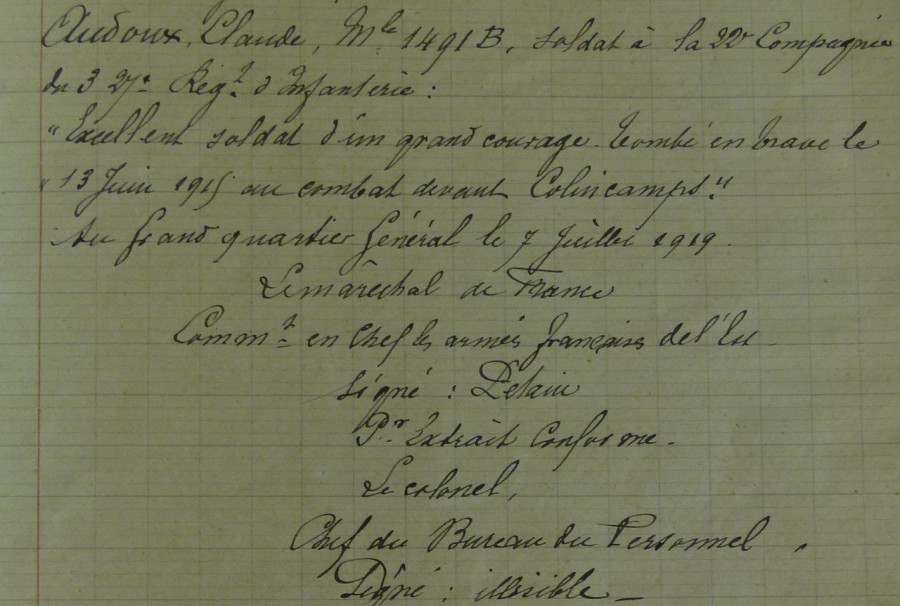 Audoux, Claude, Mle 1491 B, soldat à la 22e Compagnie
du 327e Régt d'Infanterie :
"Excellent soldat d'un grand courage. Tombé en brave le
"13 Juin 1915 au combat devant Colincamps."
Au Grand quartier Général le 7 Juillet 1919.
Le maréchal de France
Commt en Chef les armées françaises de l'Est
Signé : Pétain
Pr Extrait Conforme.
Le colonel,
Chef du Bureau du Personnel,
Signé : illisible